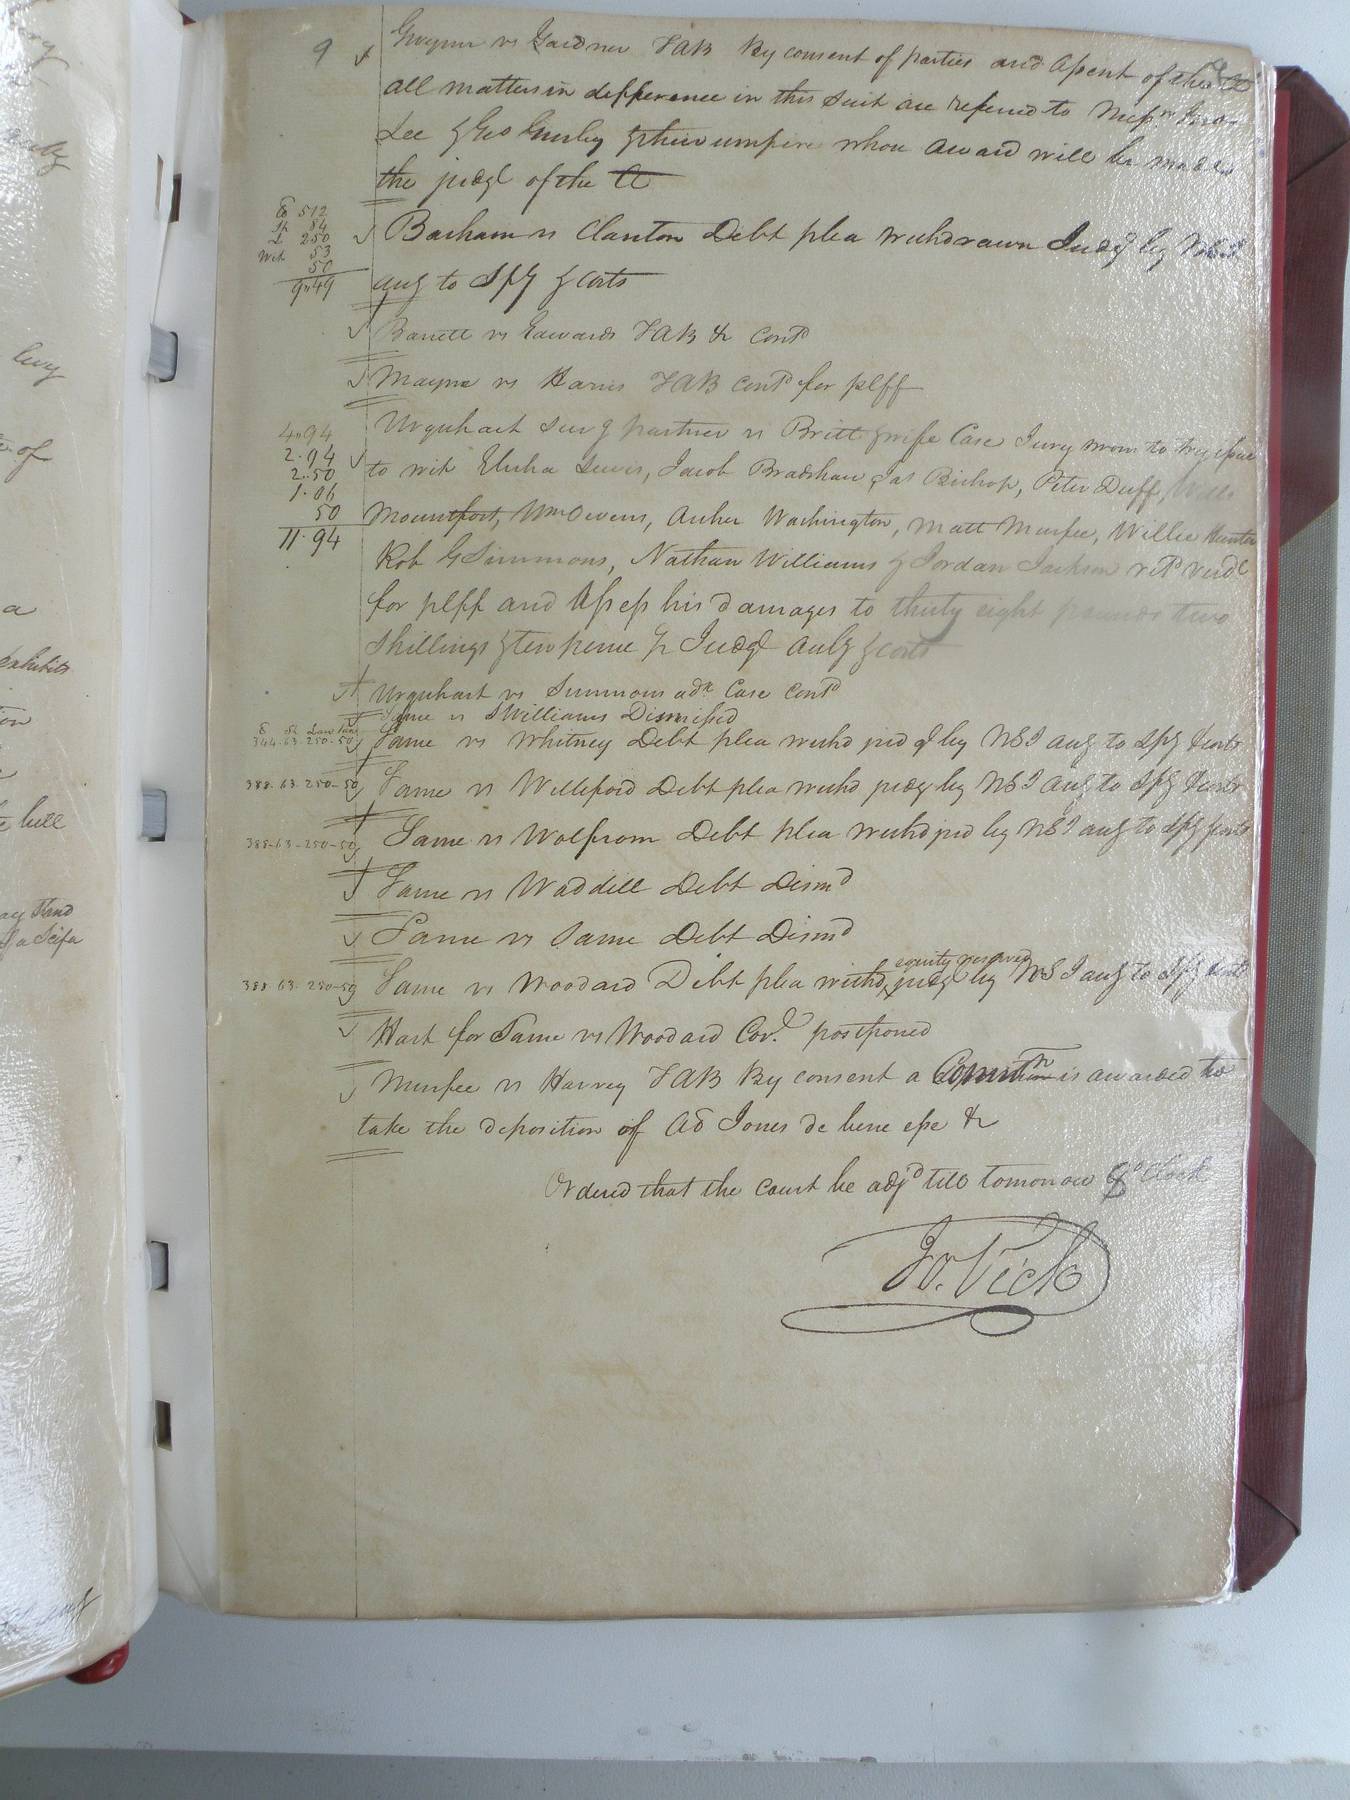 9
Gwynn vs Gardner TAB By consent of parties and Assent of the Ct
all matters in defference in this suit are refered to Messrs Jno
Lee & Geo Gurley & their umpire whose award will be made
the judgt of the Ct
C 512
Sh 84
L 250
Wit 53
50
9"49
Barham vs Clanton Debt plea withdrawn Judgt by NSI
aug to Spy & costs
Barrett vs Edwards TAB &c Contd
Mayne vs Harris TAB Contd for plff
4"94
2"94
2"50
1"06
50
11"94
Urquhart surv g partner vs Britt & wife Case Jury sworn to try issue
to wit Elisha Lewis, Jacob Bradshaw Jas Bishop, Peter Duff, Wills
Mountfort, Wm Owens, Archer Washington, Matt Murfee, Willie Hunter
Rob G Simmons, Nathan Williams & Jordan Jackson retd verdt
for plff and Assess his damages to thirty eight pounds two
shillings & ten pence & Judgt and costs
Urquhart vs Simmons adr Case Contd
Same vs S Williams Dismissed
344.63.250.50
Same vs Whitney Debt plea withd judgt by NSI aug to Spy & costs
388.63.250-50
Same vs Welleford Debt plea withd judgt by NSI aug to Spy & costs
388-63-250-50
Same vs Wolfrom Debt plea withd jud by NSI aug to Spy & costs
Same vs Waddell Debt Dismd
Same vs Same Debt Dismd
equity reserved
388.63.250-50
Same vs Woodard Debt plea withd, judgt by NSI aug to Spy & costs
Hart for Same vs Woodard Cov. postponed
Murfee vs Harvey TAB By consent a Comn is awarded to
take the deposition of Ad Jones de bene esse &c
Ordered that the court be adjd till tomorrow 9 oClock
Jo. Vick